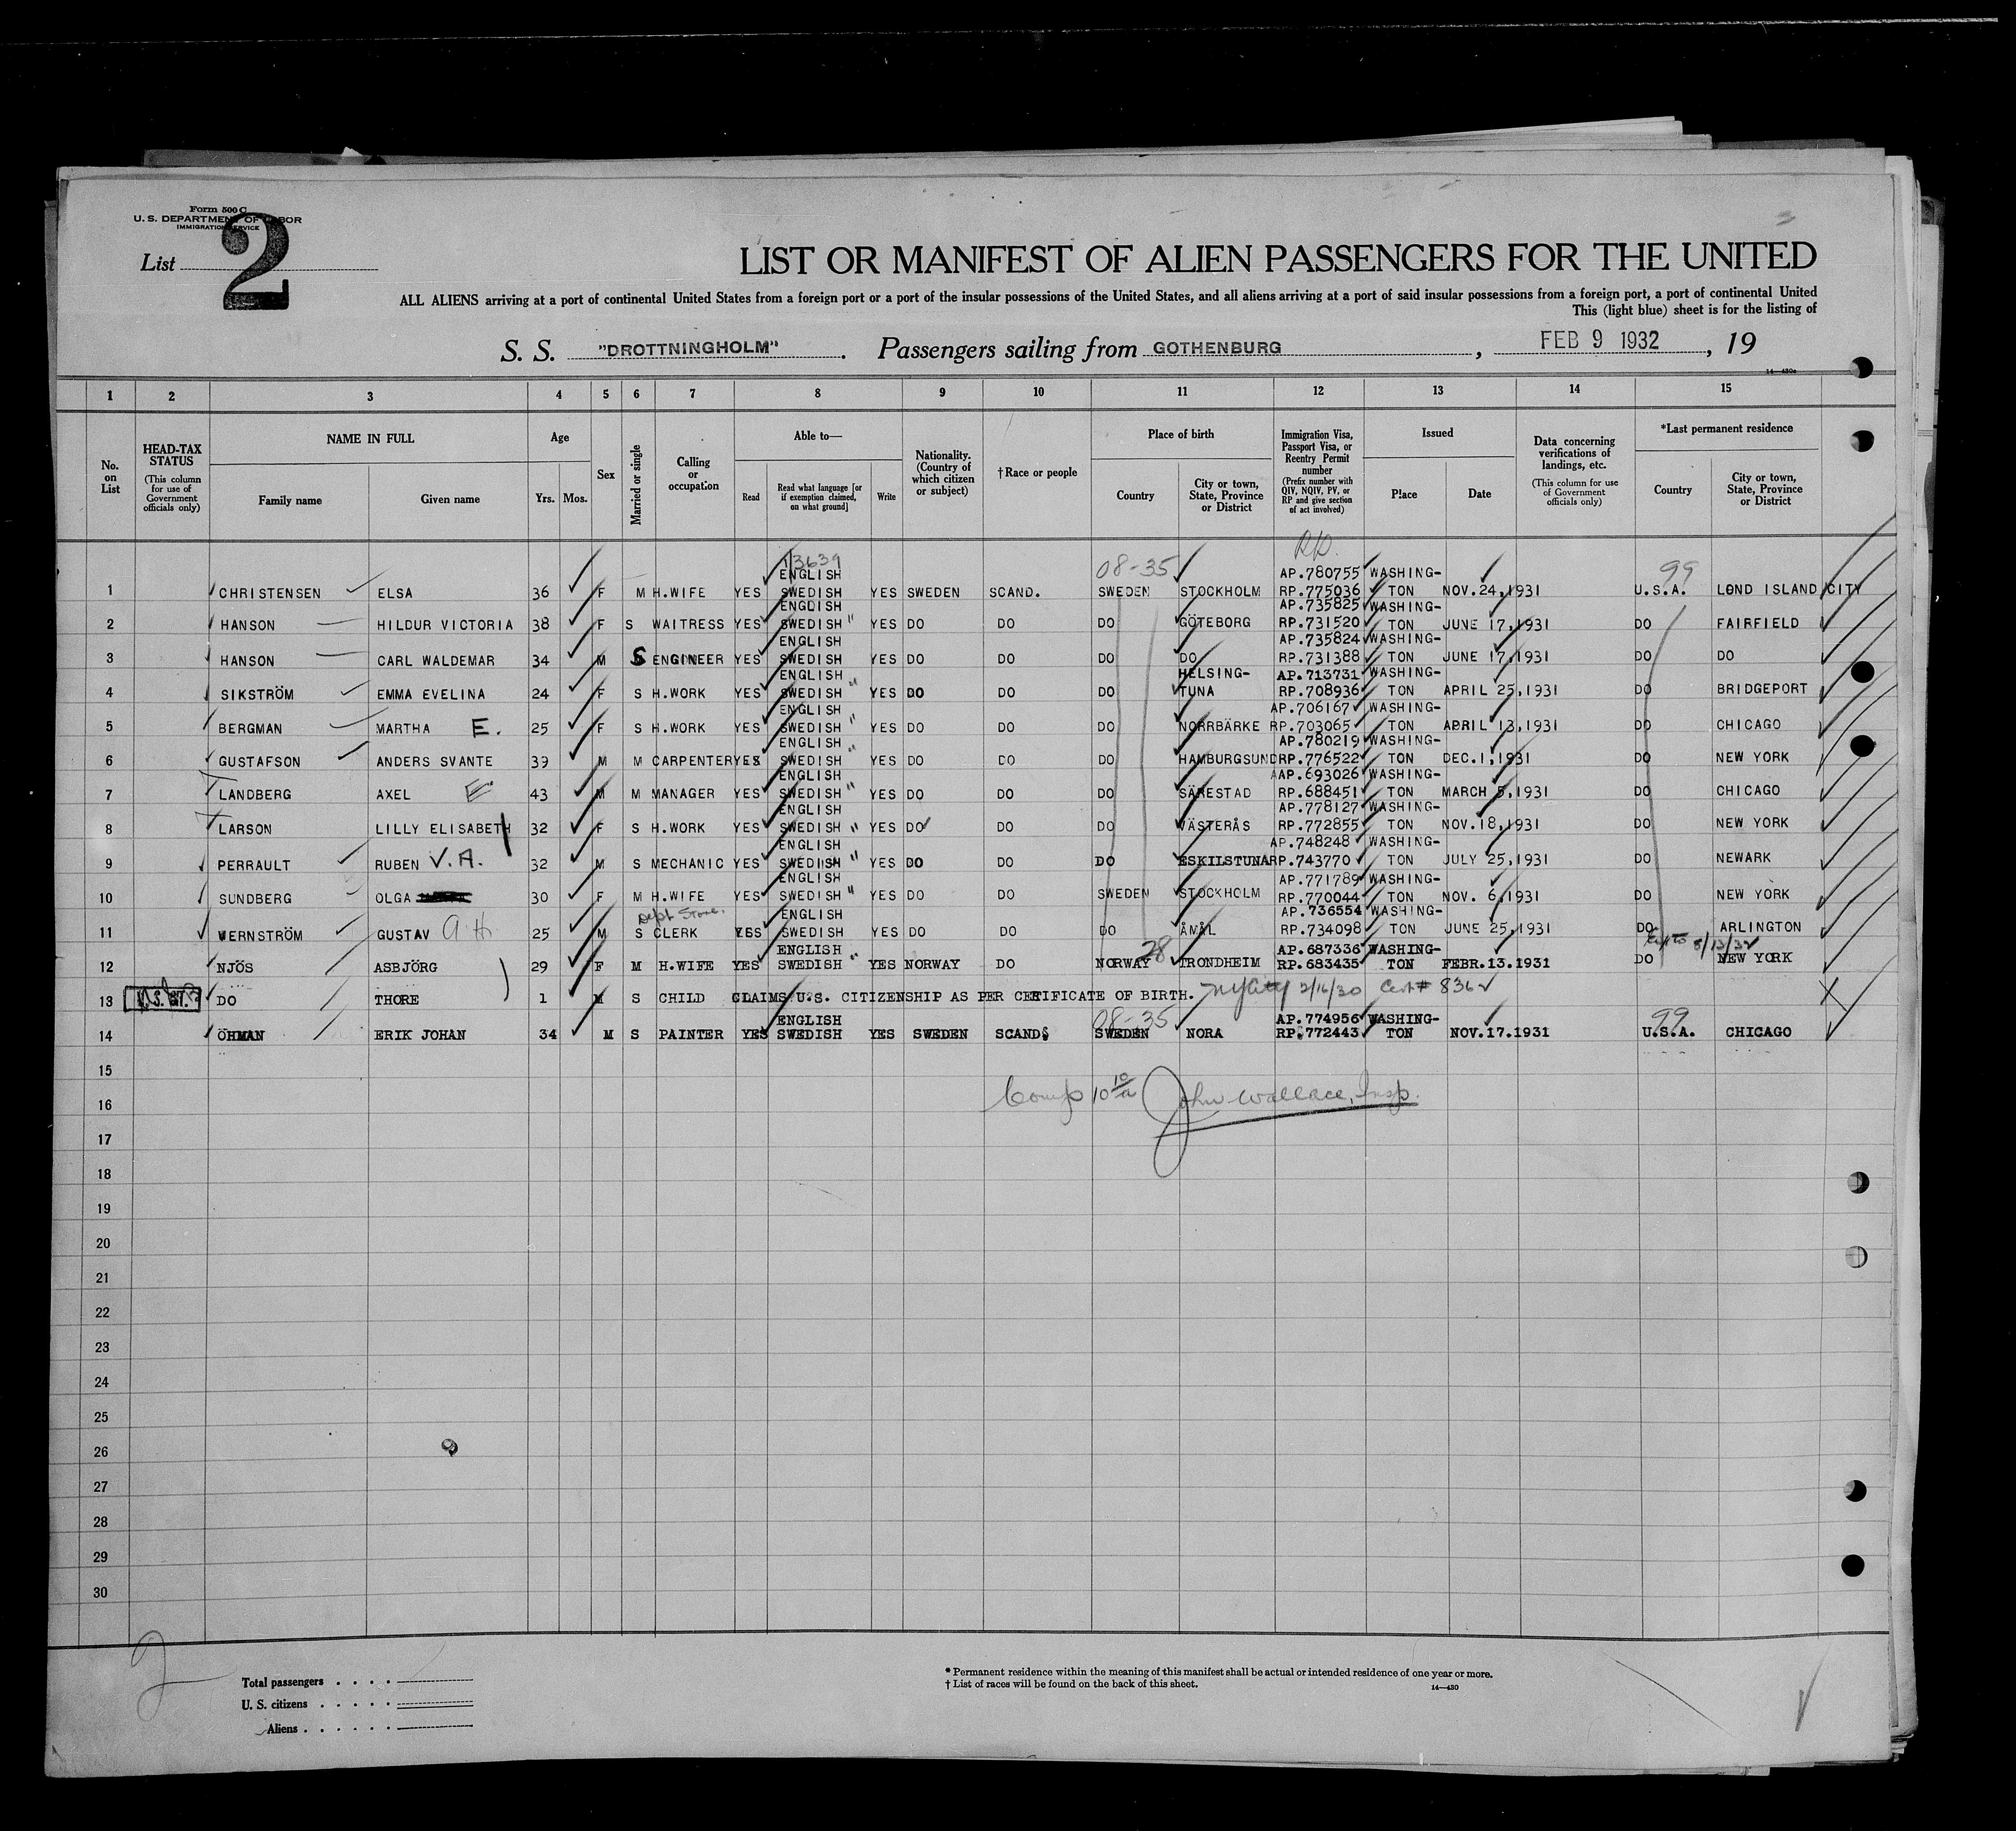 Form 500 C
U. S. DEPARTMENT OF LABOR
IMMIGRATION SERVICE
List 2
LIST OR MANIFEST OF ALIEN PASSENGERS FOR THE UNITED
ALL ALIENS arriving at a port of continental United States from a foreign port or a port of the insular possessions of the United States, and all aliens arriving at a port of said insular possessions from a foreign port, a port of continental United
This (light blue) sheet is for the listing of
S. S. "DROTTNINGHOLM". Passengers sailing from GOTHENBURG, FEB 9 1932, 19
14—430a
1 2 3 4 5 6 7 8 9 10 11 12 13 14 15
No. on List
HEAD-TAX STATUS (This column for use of Government officials only)
NAME IN FULL
Family name Given name
Age
Yrs. Mos.
Sex
Married or single
Calling or occupation
Able to—
Read Read what language [or if exemption claimed, on what ground] Write
Nationality. (Country of which citizen or subject)
†Race or people
Place of birth
Country City or town, State, Province or District
Immigration Visa, Passport Visa, or Reentry Permit number (Prefix number with QIV, NQIV, PV, or RP and give section of act involved)
Issued
Place Date
Data concerning verifications of landings, etc. (This column for use of Government officials only)
*Last permanent residence
Country City or town, State, Province or District
13639 08-35 99
ENGLISH AP.780755 WASHING-
1 CHRISTENSEN ELSA 36 F M H.WIFE YES SWEDISH YES SWEDEN SCAND. SWEDEN STOCKHOLM RP.775036 TON NOV.24,1931 U.S.A. LOND ISLAND CITY
ENGLISH AP.735825 WASHING-
2 HANSON HILDUR VICTORIA 38 F S WAITRESS YES SWEDISH " YES DO DO DO GÖTEBORG RP.731520 TON JUNE 17,1931 DO FAIRFIELD
ENGLISH AP.735824 WASHING-
3 HANSON CARL WALDEMAR 34 M S ENGINEER YES SWEDISH YES DO DO DO DO RP.731388 TON JUNE 17,1931 DO DO
ENGLISH HELSING- AP.713731 WASHING-
4 SIKSTRÖM EMMA EVELINA 24 F S H.WORK YES SWEDISH " YES DO DO DO TUNA RP.708936 TON APRIL 25,1931 DO BRIDGEPORT
ENGLISH AP.706167 WASHING-
5 BERGMAN MARTHA E. 25 F S H.WORK YES SWEDISH " YES DO DO DO NORRBÄRKE RP.703065 TON APRIL 13,1931 DO CHICAGO
ENGLISH AP.780219 WASHING-
6 GUSTAFSON ANDERS SVANTE 39 M M CARPENTER YES SWEDISH " YES DO DO DO HAMBURGSUND RP.776522 TON DEC.1,1931 DO NEW YORK
ENGLISH AP.693026 WASHING-
7 LANDBERG AXEL E 43 M M MANAGER YES SWEDISH " YES DO DO DO SÄRESTAD RP.688451 TON MARCH 5,1931 DO CHICAGO
ENGLISH AP.778127 WASHING-
8 LARSON LILLY ELISABETH 32 F S H.WORK YES SWEDISH " YES DO DO DO VÄSTERÅS RP.772855 TON NOV.18,1931 DO NEW YORK
ENGLISH AP.748248 WASHING-
9 PERRAULT RUBEN V.A. 32 M S MECHANIC YES SWEDISH " YES DO DO DO ESKILSTUNA RP.743770 TON JULY 25,1931 DO NEWARK
ENGLISH AP.771789 WASHING-
10 SUNDBERG OLGA 30 F M H.WIFE YES SWEDISH " YES DO DO SWEDEN STOCKHOLM RP.770044 TON NOV. 6,1931 DO NEW YORK
Dept Store. ENGLISH AP.736554 WASHING-
11 WERNSTRÖM GUSTAV A H 25 M S CLERK YES SWEDISH YES DO DO DO ÅMÅL RP.734098 TON JUNE 25,1931 DO ARLINGTON
ENGLISH 28 AP.687336 WASHING- 8/13/32
12 NJÖS ASBJÖRG 29 F M H.WIFE YES SWEDISH " YES NORWAY DO NORWAY TRONDHEIM RP.683435 TON FEBR.13.1931 DO NEW YORK
13 DO THORE 1 M S CHILD CLAIMS U.S. CITIZENSHIP AS PER CERTIFICATE OF BIRTH. NY City 2/16/30 Cert # 836
ENGLISH 08-35 AP.774956 WASHING- 99
14 ÖHMAN ERIK JOHAN 34 M S PAINTER YES SWEDISH YES SWEDEN SCAND. SWEDEN NORA RP.772443 TON NOV.17.1931 U.S.A. CHICAGO
15
16 Comp 10 John Wallace, Insp.
17
18
19
20
21
22
23
24
25
26
27
28
29
30
2
Total passengers
U. S. citizens
Aliens
* Permanent residence within the meaning of this manifest shall be actual or intended residence of one year or more.
† List of races will be found on the back of this sheet.
14—430